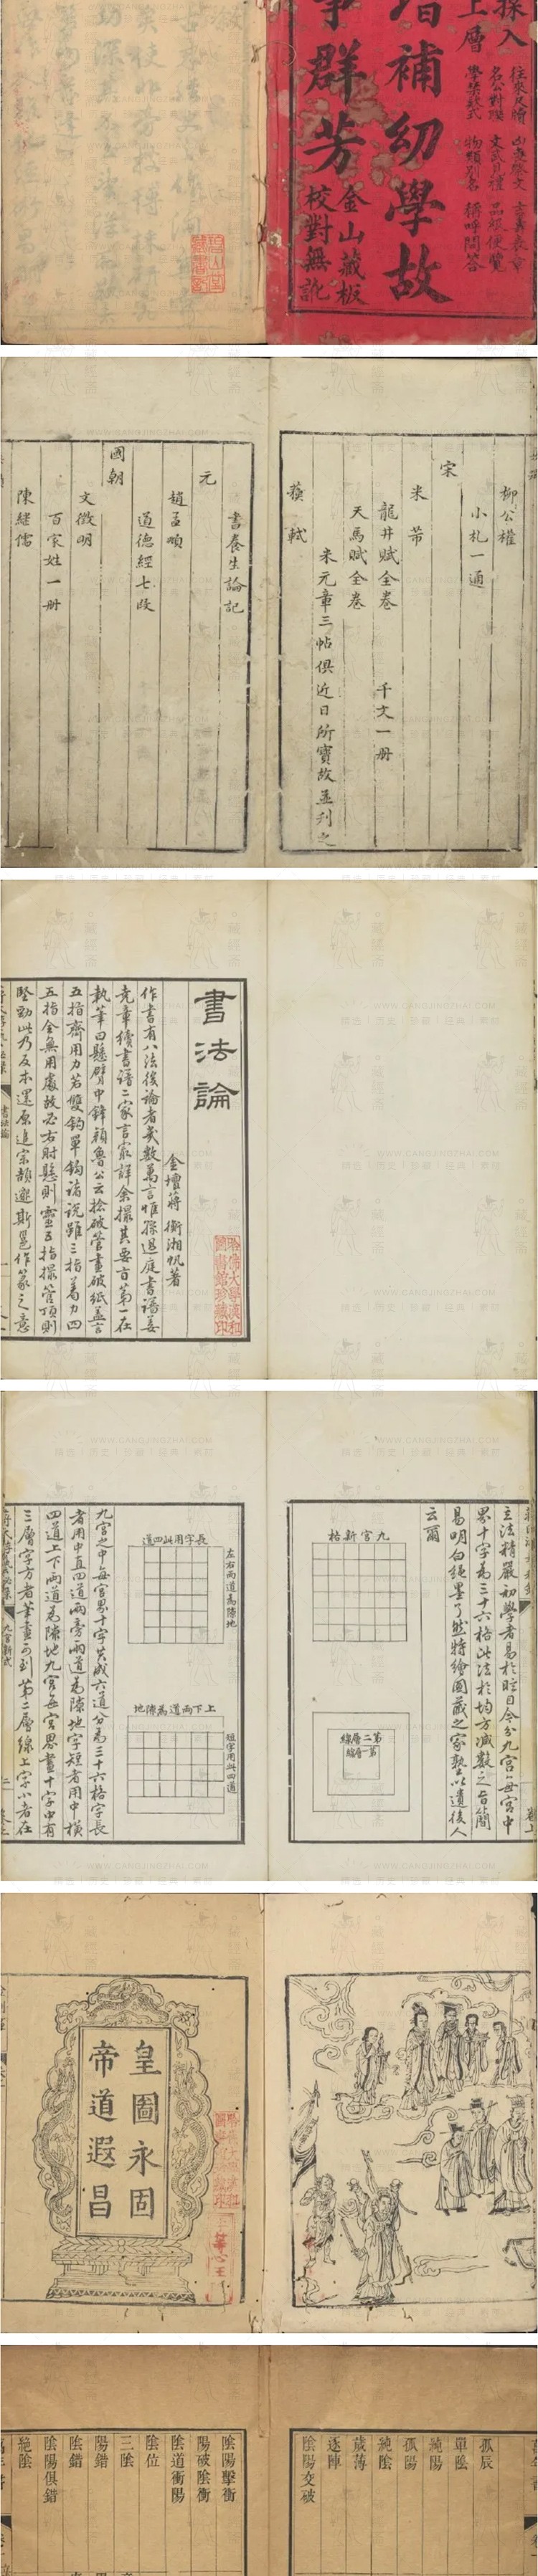 採入
上層
往來尺牘
增補幼學故
事群芳
金山藏板
校對無訛
柳公權
小札一通
宋
米芾
龍井賦全卷 千文一册
天馬賦全卷
米元章三帖俱近日所寶故並列之
蘇軾
書養生論記
元
趙孟頫
道德經七段
國朝
文徵明
百家姓一册
陳繼儒
書法論
金壇蔣衡湘帆著
作書有八法後論者幾數萬言惟孫過庭書譜姜
堯章續書譜二家言最詳余撮其要旨第一在
執筆曰懸臂中鋒顏魯公云捻破管畫破紙蓋言
五指齊用力若雙鈎單鈎諸說雖三指着力四
五指全無用處故必右肘懸則靈五指撮管頂則
堅勁此乃反本還原追宗頡邈斯邕作篆之意
哈佛大學漢和圖書館珍藏印
書法論
立法精嚴初學者易於眩目今分九宮每宮中
界十字為三十六格此法於均方減數之旨簡
易明白繩墨了然特繪圖藏之家塾以遺後人
云爾
九宮新格
第二層線
第一層線
長字用此四道
左右兩道為隙地
上下兩道為隙地
短字用此四道
九宮之中每宮界十字共成六道分為三十六格字長
者用中直四道兩旁兩道為隙地字短者用中橫
四道上下兩道為隙地九宮每宮思畫十字中有
三層字方者筆畫可到第二層線上字小者在
九宮新式
皇圖永固
帝道遐昌
孤辰
單陰
純陽
孤陽
純陰
歲薄
逐陣
陰陽交破
陰陽擊衝
陽破陰衝
陰道衝陽
陰位
三陰
陽錯
陰錯
陰陽俱錯
絕陰
WWW.CANGJINGZHAI.COM
精选 | 历史 | 珍藏 | 经典 | 素材
藏經斋